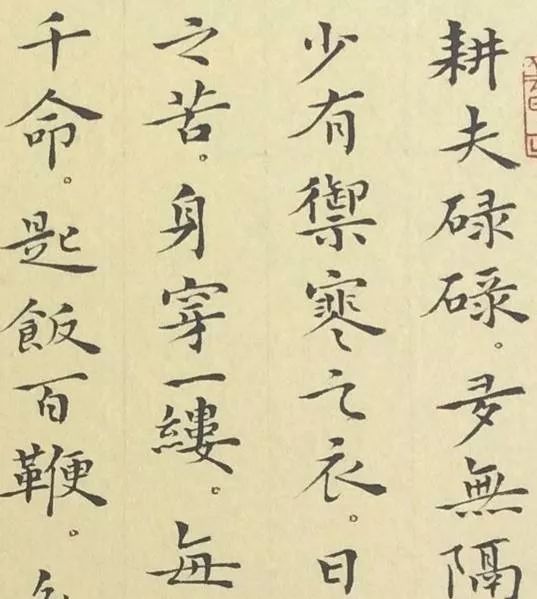 耕夫碌碌。多無隔
少有禦寒之衣。日
之苦。身穿一縷。每
千命。匙飯百鞭。